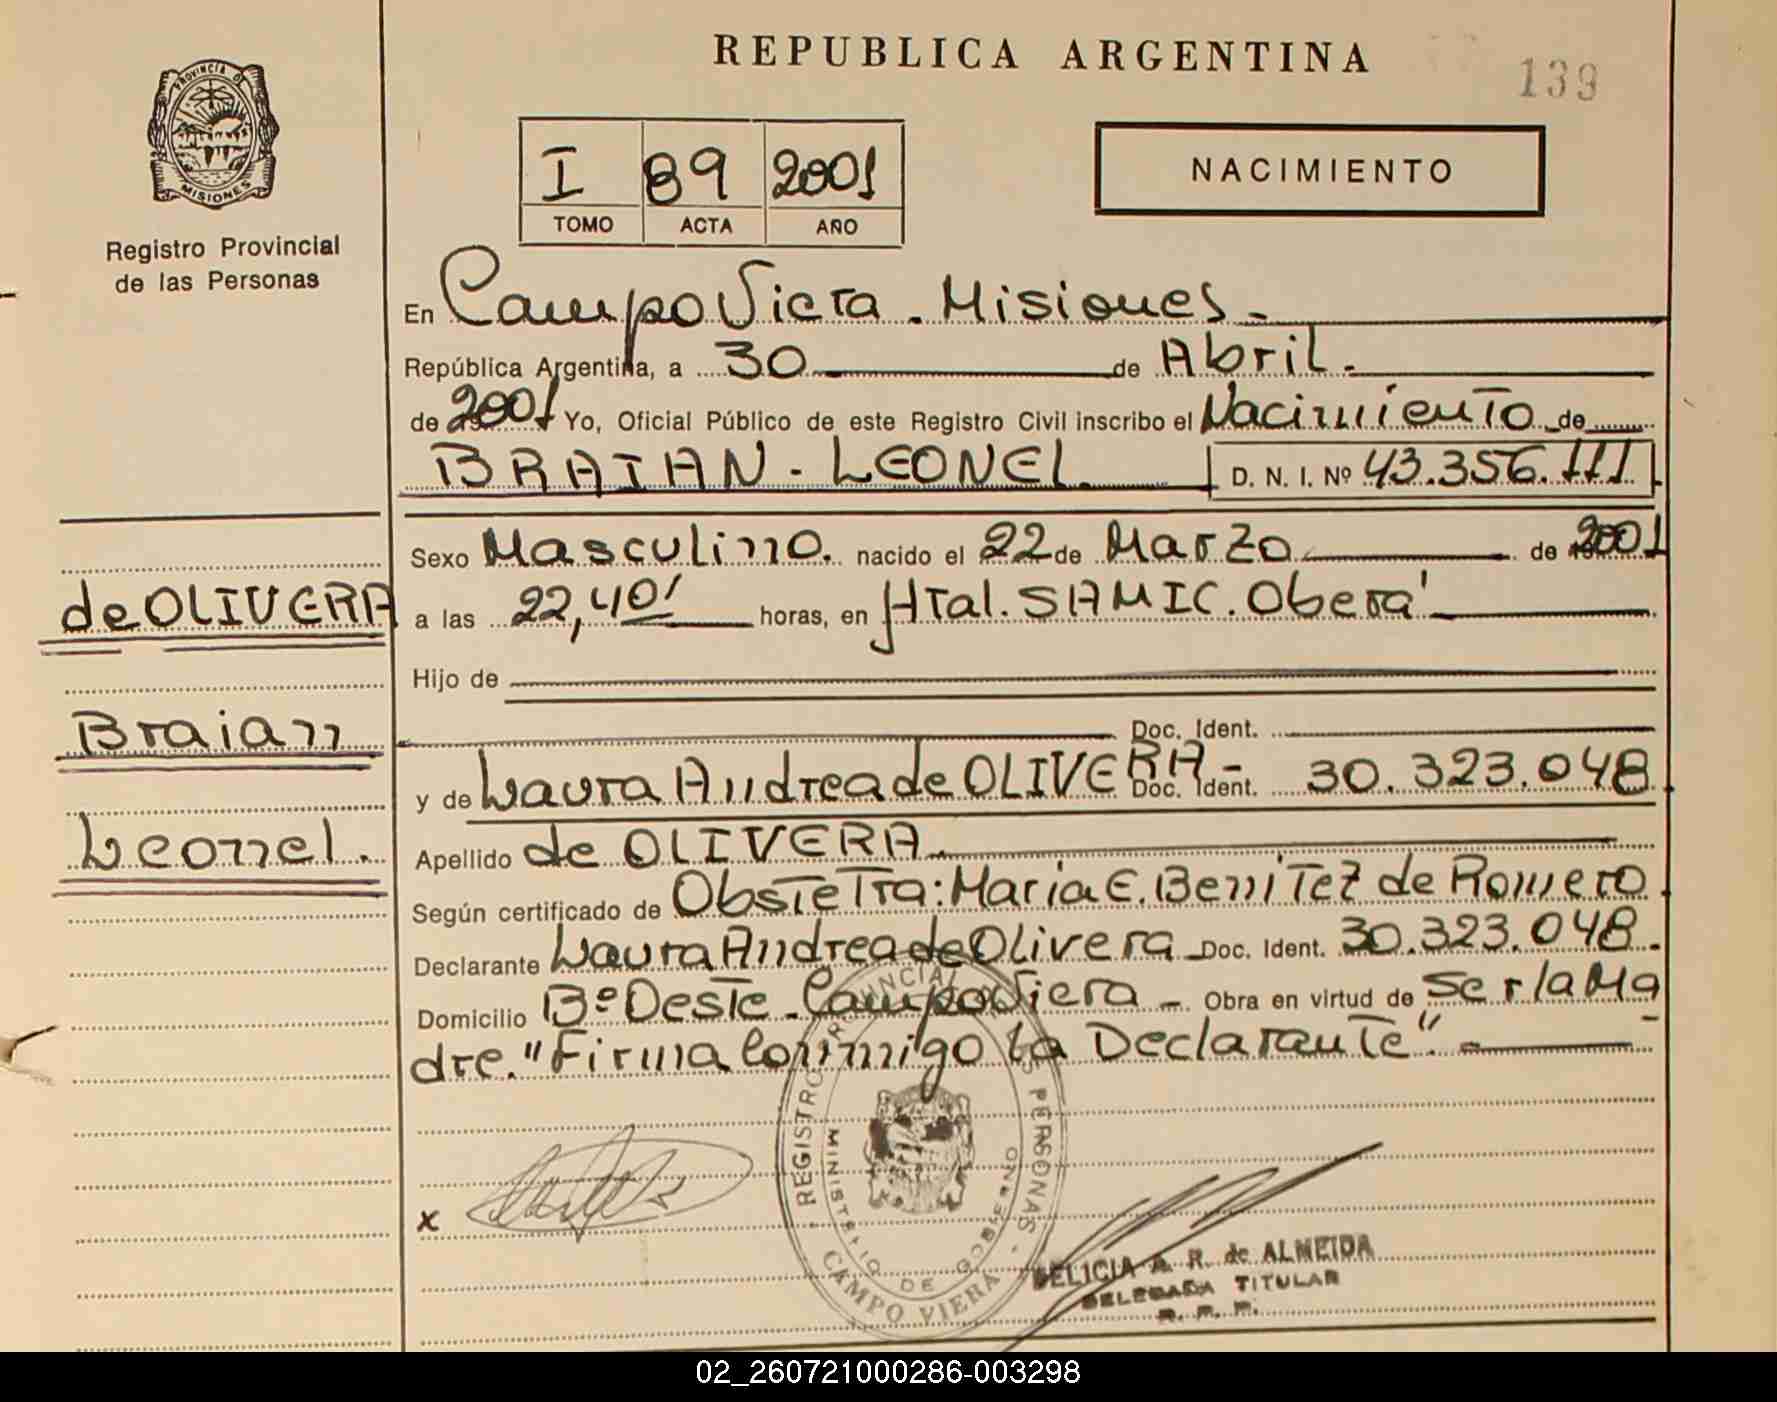 REPUBLICA ARGENTINA
139
PROVINCIA DE
MISIONES
Registro Provincial
de las Personas
I 89 2001
TOMO ACTA AÑO
NACIMIENTO
En Campo Viera . Misiones -
República Argentina, a 30 de Abril.
de 2001 Yo, Oficial Público de este Registro Civil inscribo el Nacimiento de
BRAIAN - LEONEL. D. N. I. Nº 43.356.111
Sexo Masculino. nacido el 22 de Marzo de 2001
de OLIVERA
a las 22,40' horas, en Htal. SAMIC. Oberá
Hijo de
Braian
Doc. Ident.
y de Laura Andrea de OLIVERA - Doc. Ident. 30.323.048
Leonel.
Apellido de OLIVERA.
Según certificado de Obstetra: Maria E. Benitez de Romero.
Declarante Laura Andrea de Olivera - Doc. Ident. 30.323.048.
Domicilio Bº Oeste - Campo Viera - Obra en virtud de ser la Ma
dre. "Firma Conmigo la Declarante".
x
REGISTRO PROVINCIAL DE LAS PERSONAS
MINISTERIO DE GOBIERNO
CAMPO VIERA
DELICIA A. R. de ALMEIDA
DELEGADA TITULAR
R. P. P.
02_260721000286-003298